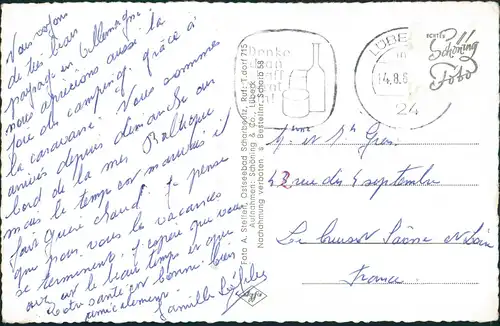 Nous voyons
de très beaux
paysage en Allemagne.
nous apprécions aussi la
joie du camping, grâce à
la caravane. Nous sommes
arrivés depuis dimanche au
bord de la mer Baltique
mais le temps est mauvais il
fait guère chaud. Je pense
que pour vous les vacances
se terminent. J'espère que vous
avez eu le beau temps et que
votre santé est bonne. bien
amicalement.
Famille
Foto A. Steffen, Ostseebad Scharbeutz, Ruf: T.dorf 715
Aufnahmen: Schöning & Co., Lübeck
Nachahmung verboten Bestellnr. Scharb 58
Agfa
Denke
dran
LÜBE
14.8.6
24
ECHTES
Schöning
Foto
et Mr Gros
42 rue du 4 septembre
Le Creusot Saône et Loire
France